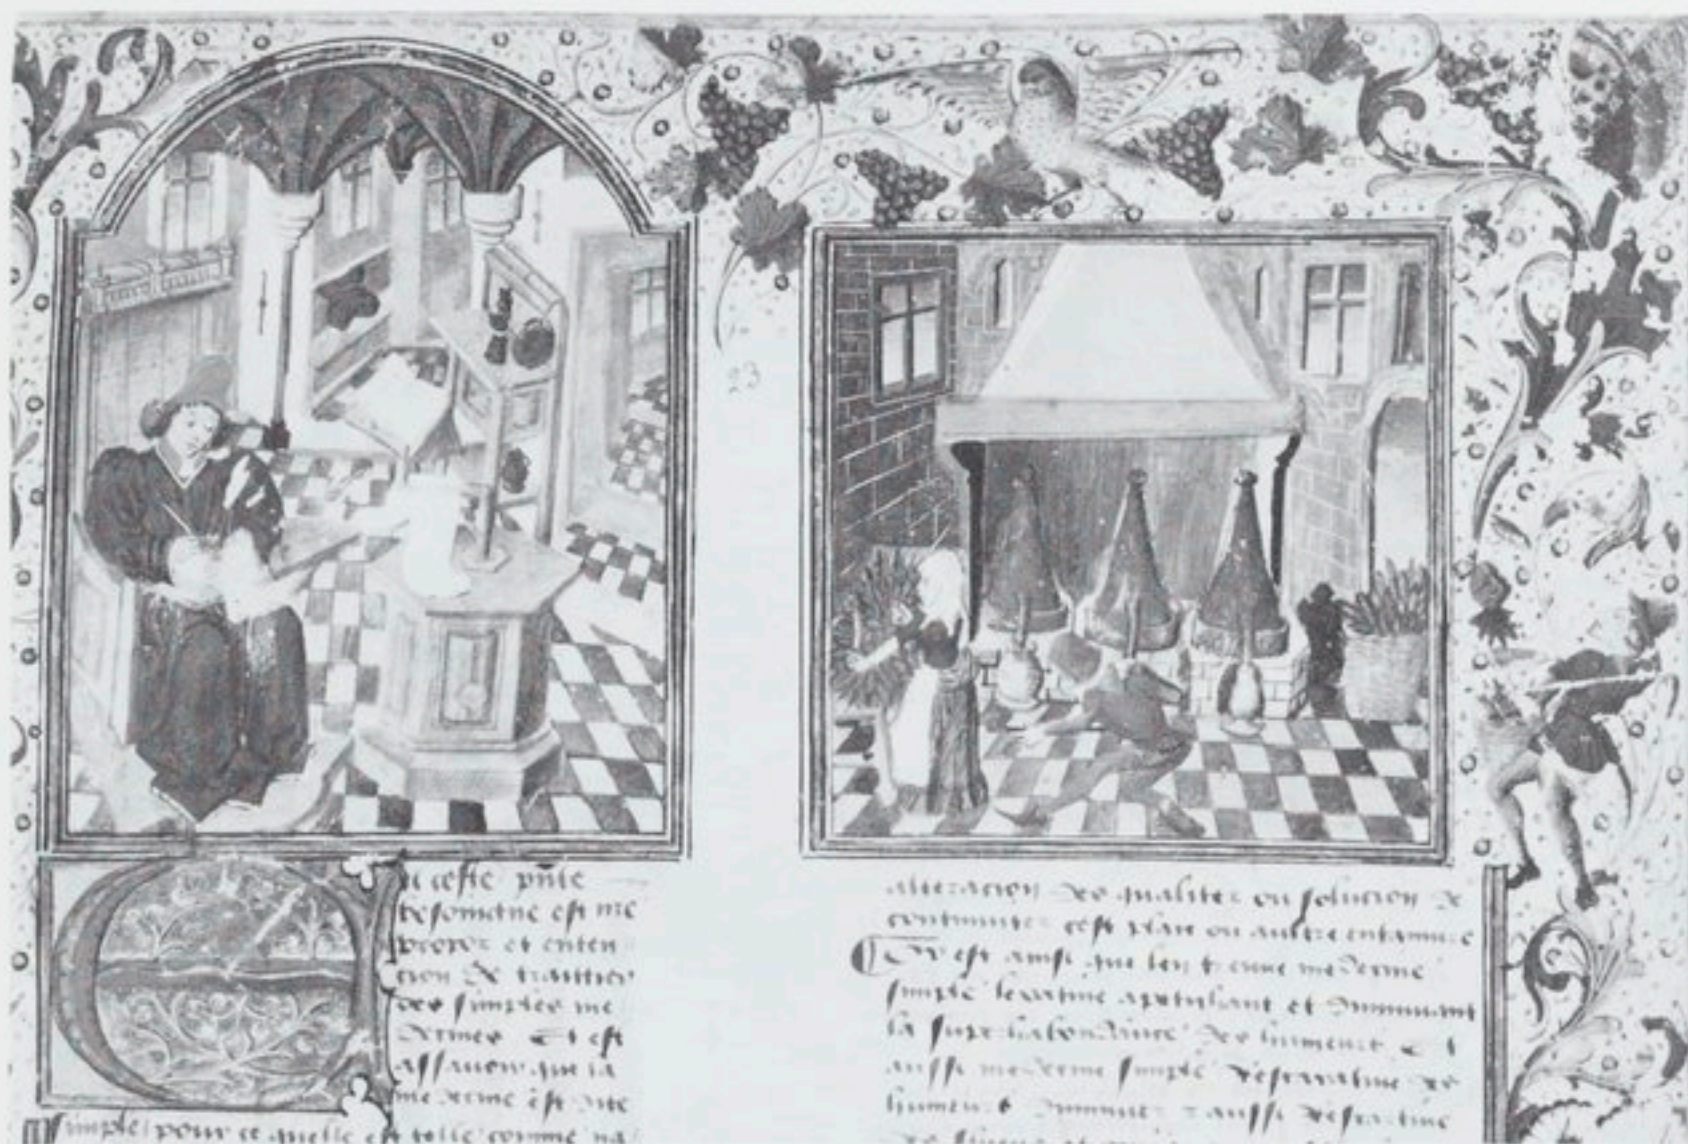 23
En ceste pñte
besoingne est mõ
propoz et enten
cion de traittier
des simples me
decines Et est
assavoir que la
medecine est dite
simple pour ce quelle est telle comme na
alteracion des qualitez ou solucion de
continuite cest plaie ou autre entamure
Et est ainsi que len treuve medecine
simple laxative apetisant et diminuant
la superhabondance des humeurs Et
aussi medecine simple
humeurs aussi